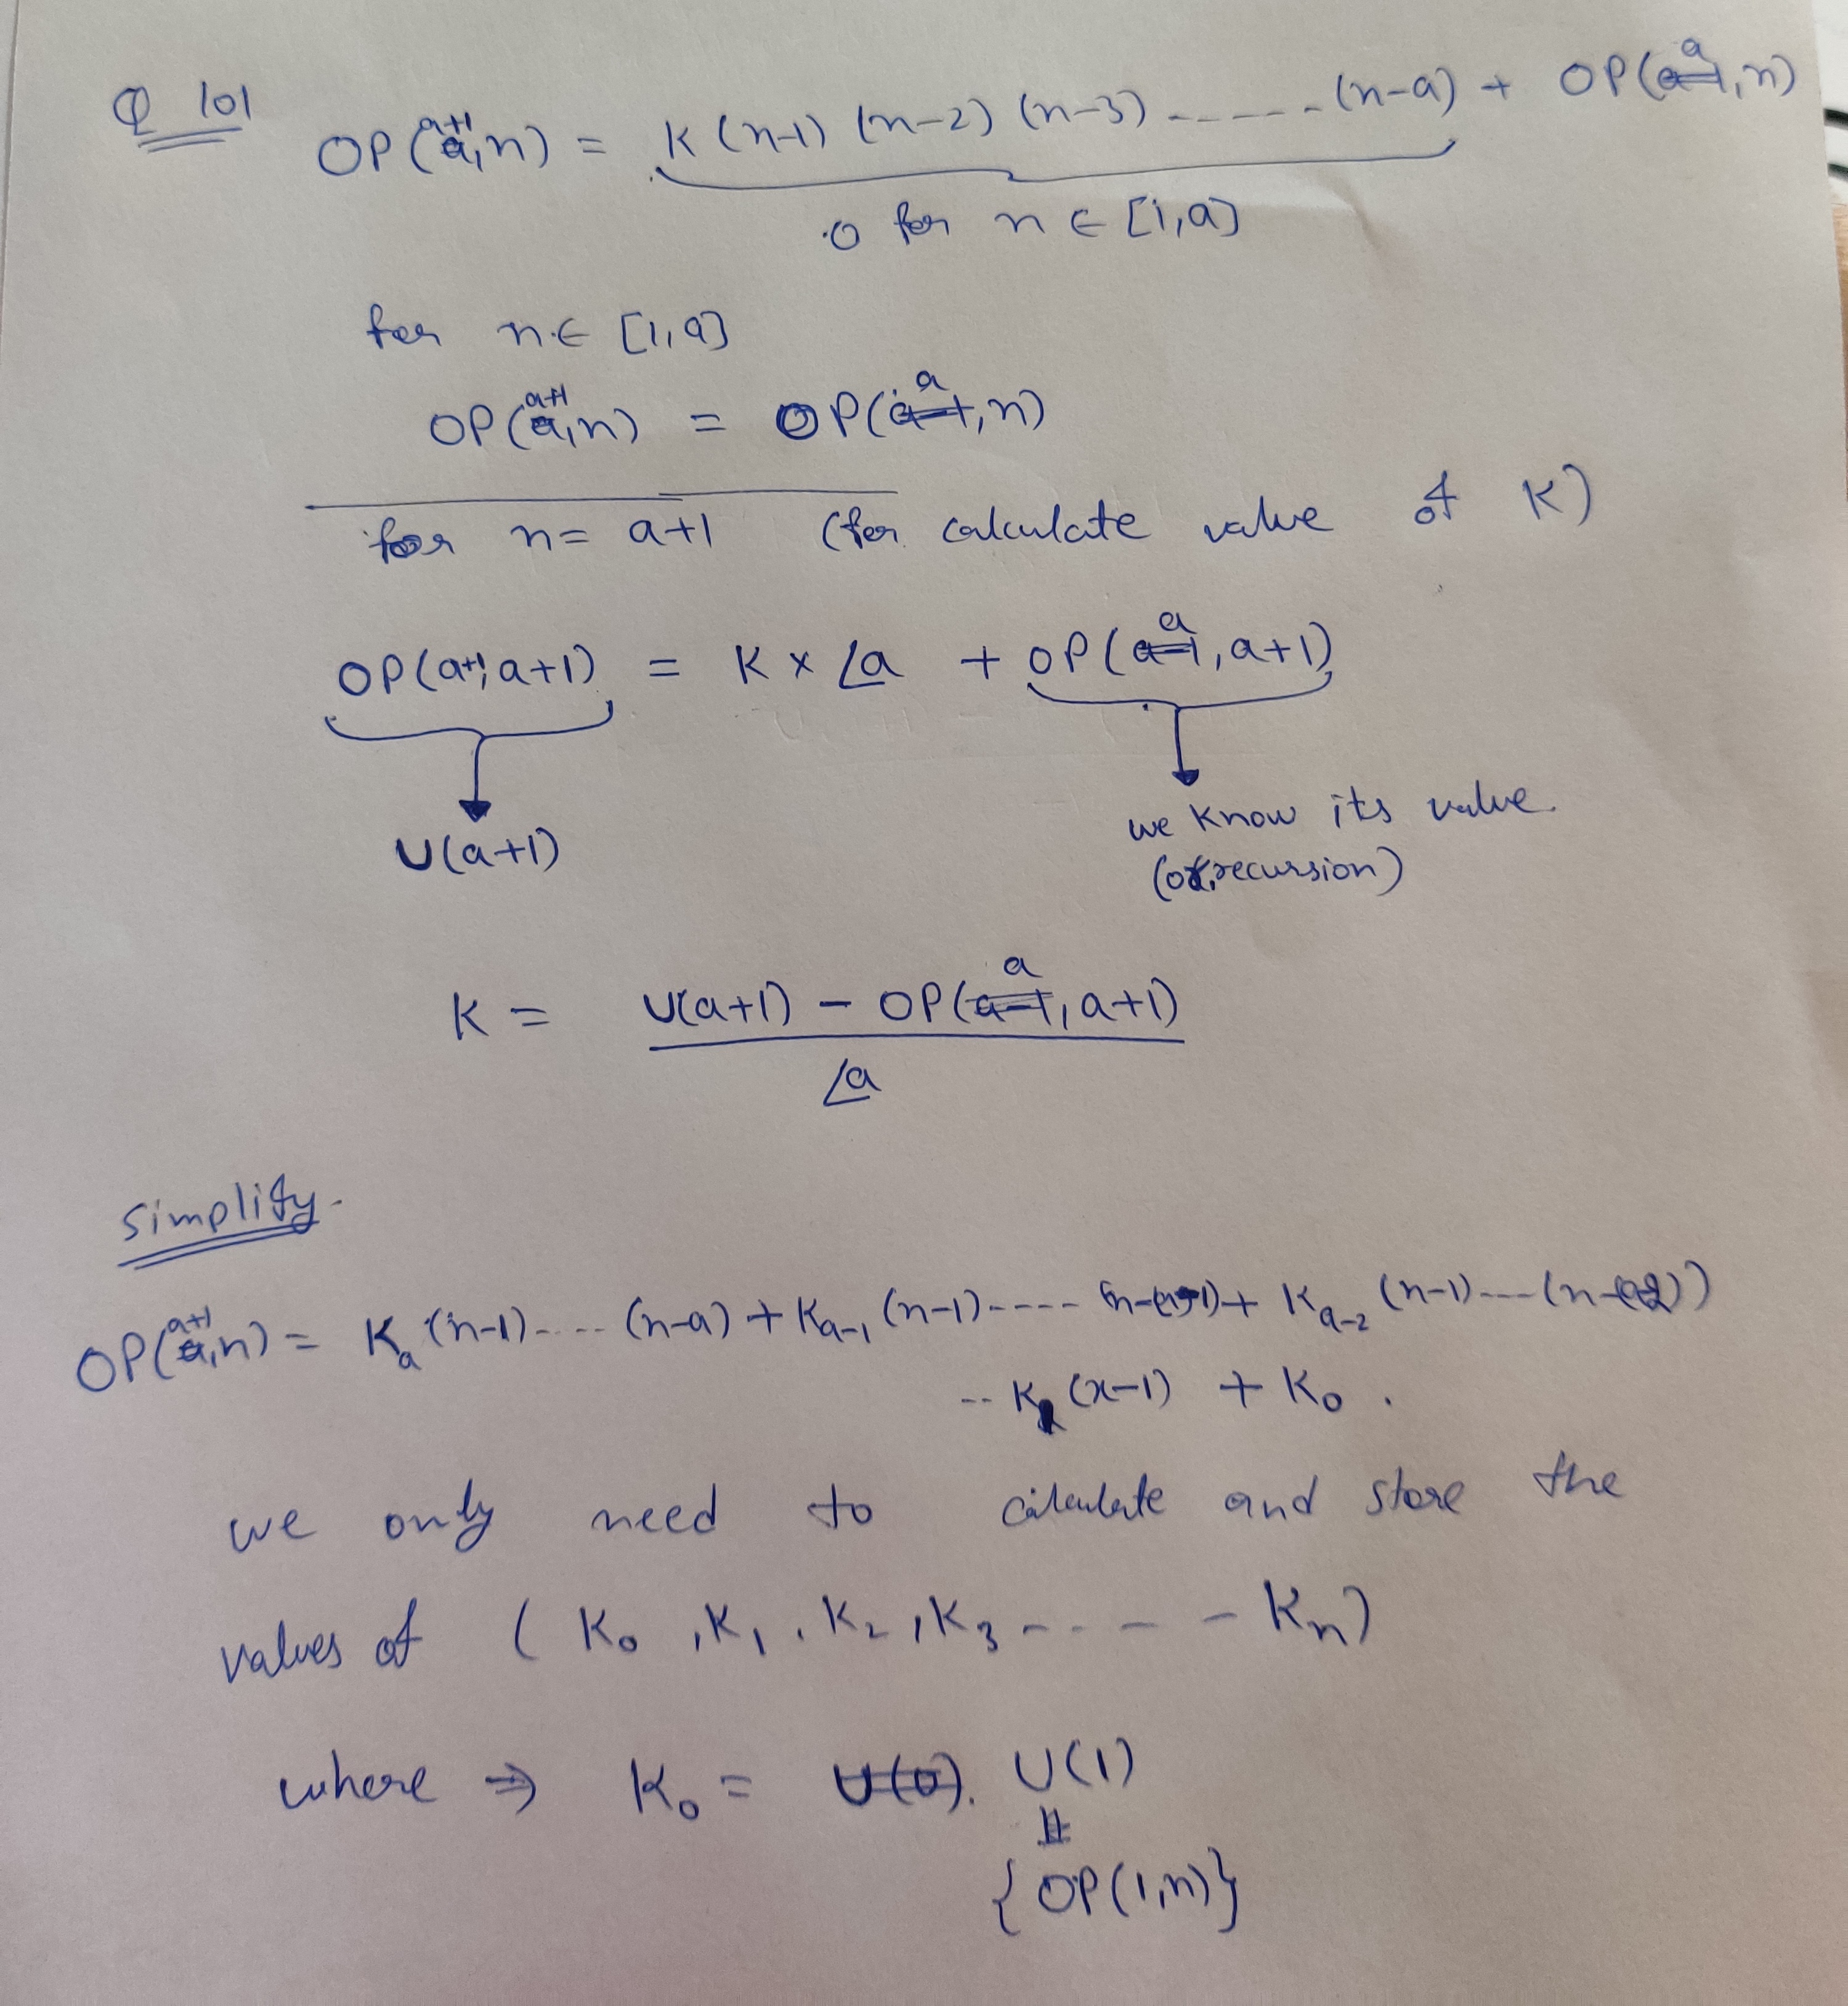 Q 101
OP(a+1,n) = K(n-1)(n-2)(n-3)-----(n-a) + OP(a,n)
0 for n ∈ [1,a]
for n ∈ [1,a]
OP(a+1,n) = OP(a,n)
for n = a+1 (for calculate value of K)
OP(a+1,a+1) = K x ∠a + OP(a,a+1)
U(a+1)
we know its value.
(recursion)
K = U(a+1) - OP(a,a+1)
∠a
Simplify-
OP(a+1,n) = Ka(n-1)....(n-a) + Ka-1(n-1)----- + Ka-2(n-1)---
-- K1(x-1) + K0.
we only need to calculate and store the
values of (K0, K1, K2, K3----- Kn)
where ⇒ K0 = U(0). U(1)
{OP(1,n)}